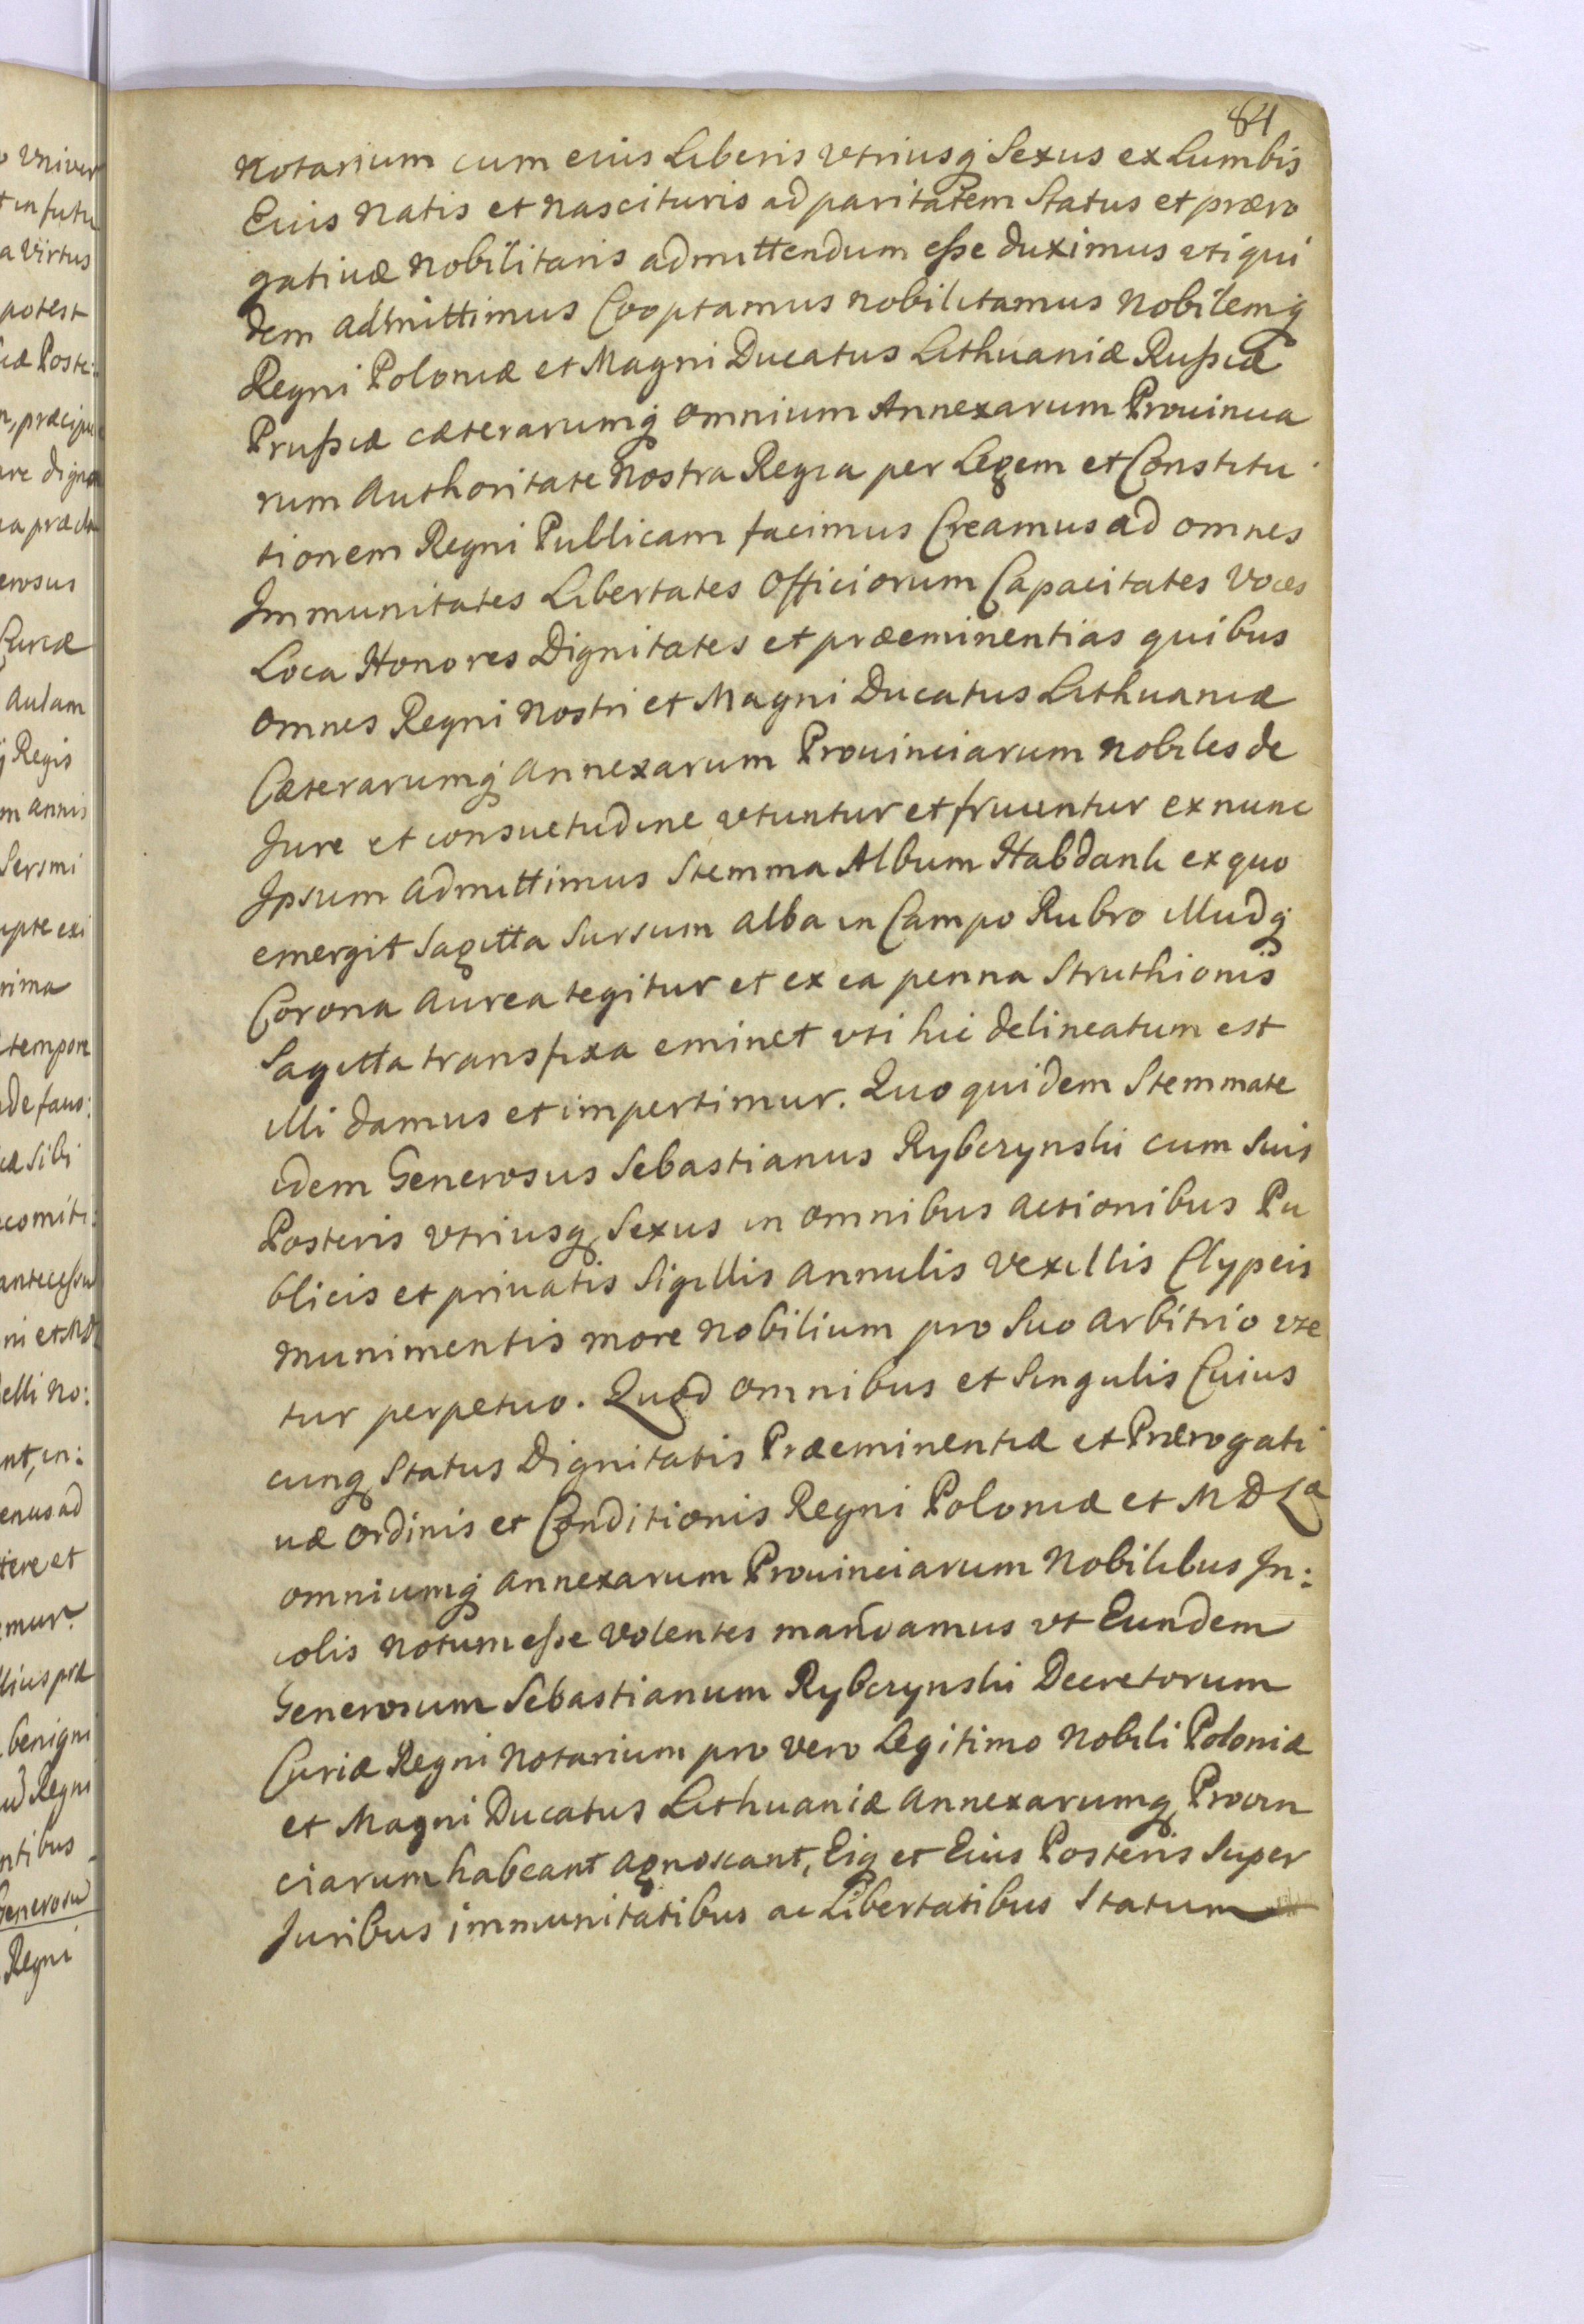 84
Notarium cum eius Liberis vtriusq́ Sexus ex Lumbis
Eius Natis et Nascituris ad paritatem Status et præro
gatiuæ Nobilitaris admittendum eſse duximus vti qui
dem admittimus Cooptamus nobilitamus Nobilemq́
Regni Poloniæ et Magni Ducatus Lithuaniæ Ruſsiæ
Pruſsiæ cæterarumq́ omnium Annexarum Prouincia
rum Authoritate Nostra Regia per Legem et Constitu
tionem Regni Publicam facimus Creamus ad omnes
Immunitates Libertates Officiorum Capacitates Voces
Loca Honores Dignitates et præeminentias quibus
omnes Regni Nostri et Magni Ducatus Lithuaniæ
Cæterarumq́ annexarum Prouinciarum Nobiles de
Jure et consuetudine vtuntur et fruuntur ex nunc
Ipsum admittimus Stemma Album Habdank ex quo
emergit Sagitta Sursum alba in Campo Rubro illudq́
Corona aurea tegitur et ex ea penna Struthionis
Sagitta transfixa eminet vti hic delineatum est
illi damus et impertimur. Quo quidem Stemmate
idem Generosus Sebastianus Rybczynski cum suis
Posteris vtriusq Sexus in omnibus actionibus Pu
blicis et priuatis Sigillis annulis vexillis Clypeis
munimentis more nobilium pro Suo arbitrio vte
tur perpetuo. Quod omnibus et Singulis Cuius
cunq Status Dignitatis Præeminentiæ et Prærogati
uæ ordinis et Conditionis Regni Poloniæ et M D Lᵃ
omniumq́ annexarum Prouinciarum Nobilibus In:
colis notum eſse volentes mandamus vt Eundem
Generosum Sebastianum Rybczynski Decretorum
Curiæ Regni Notarium pro vero Legitimo Nobili Poloniæ
et Magni Ducatus Lithuaniæ annexarumq Provin
ciarum habeant agnoscant, Eiq et Eius Posteris Super
Juribus immunitatibus ac Libertatibus Statum